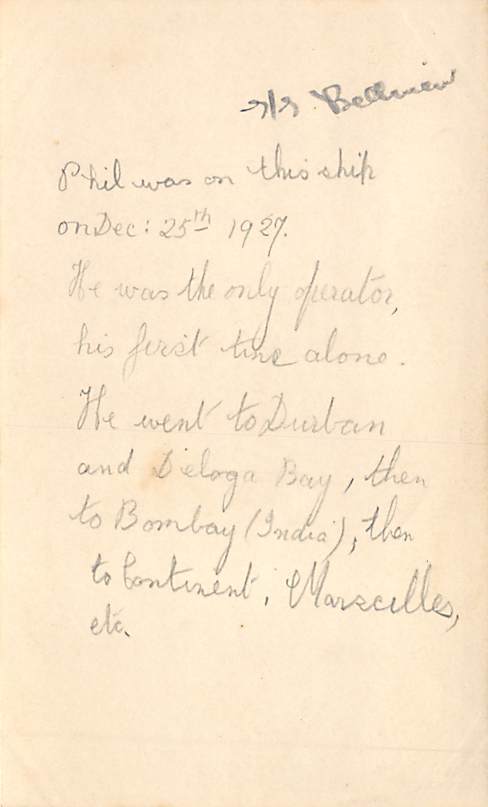 s/s Bellview
Phil was on this ship
on Dec: 25th 1927.
He was the only operator,
his first time alone.
He went to Durban
and D'eloga Bay, then
to Bombay (India), then
to Continent, Marseilles,
etc.